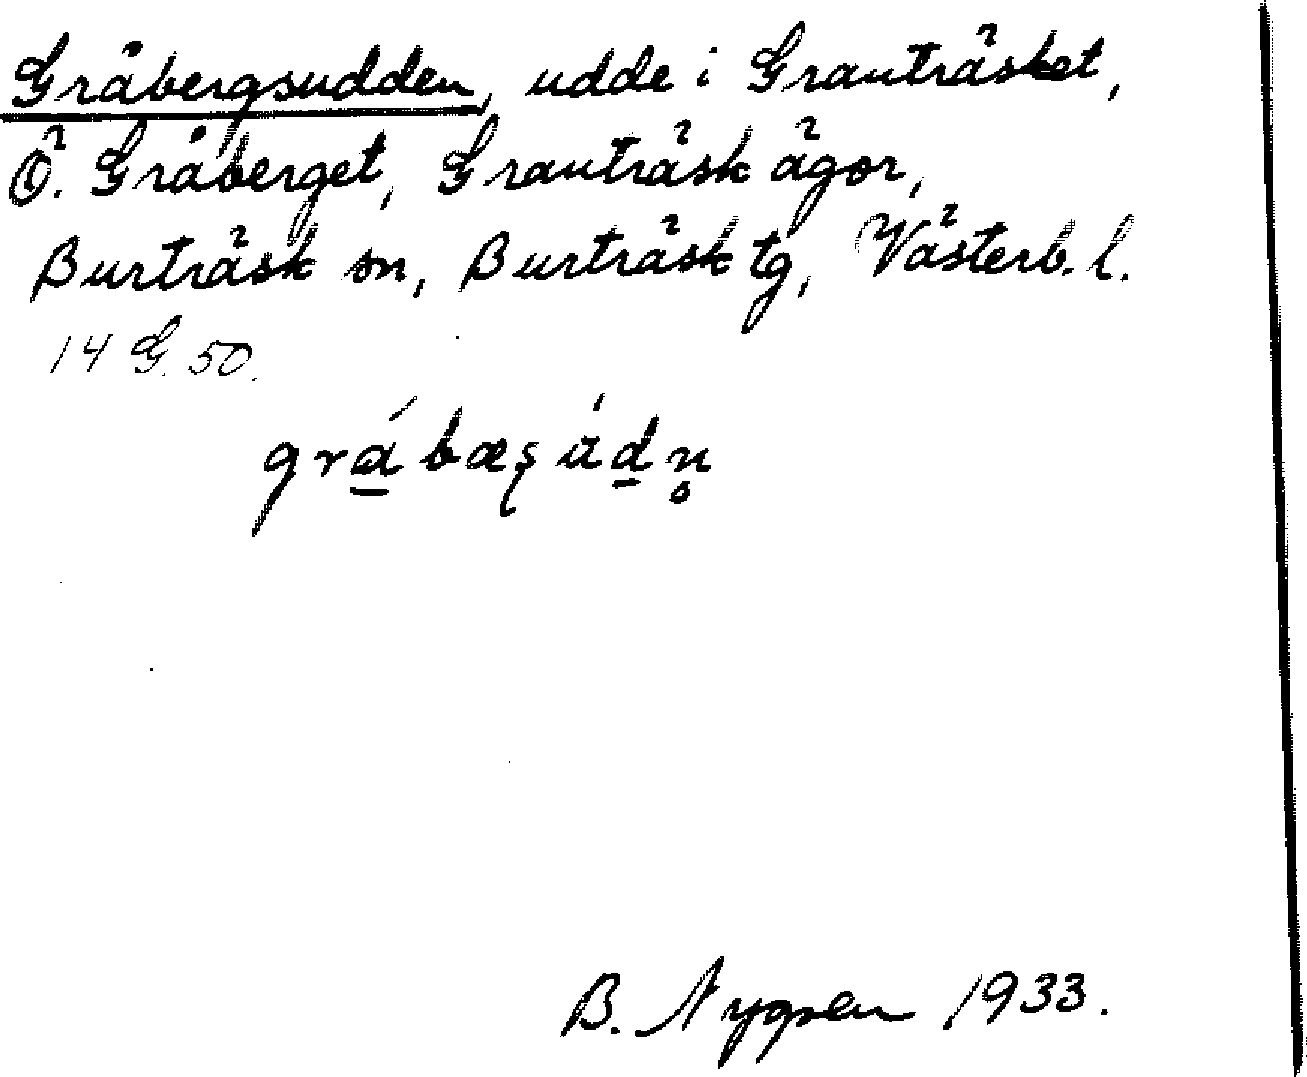 Gråbergsudden, udde i Granträsket,
Ö. Gråberget, Granträsk ägor,
Burträsk sn, Burträsk tg, Västerb. l.
14 G. 50.
B. Nygren 1933.